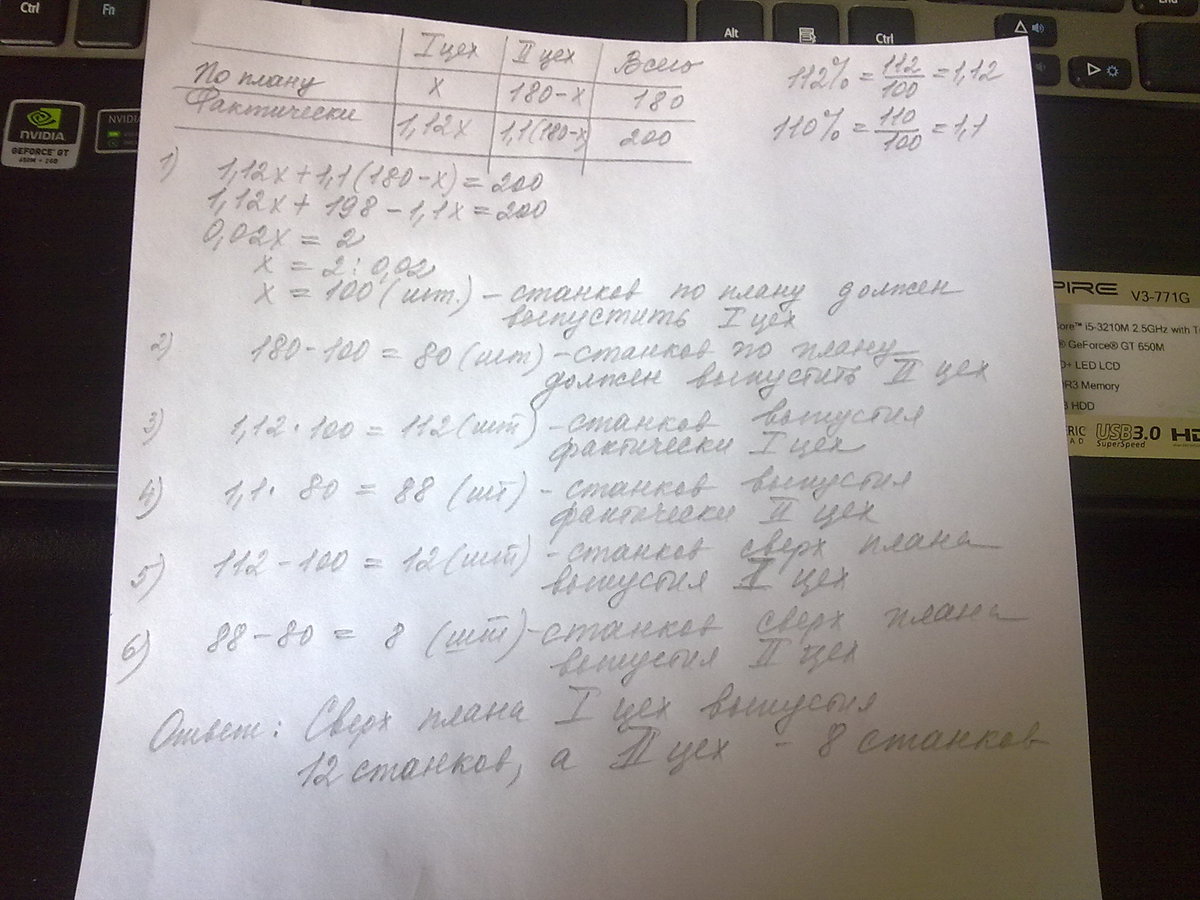 Ctrl
Fn
Alt
Ctrl
End
NVIDIA
GEFORCE GT
650M • 2GB
NVIDIA
I цех II цех Всего
По плану х 180-х 180
Фактически 1,12х 1,1(180-х) 200
112% = 112/100 = 1,12
110% = 110/100 = 1,1
1) 1,12х + 1,1(180-х) = 200
1,12х + 198 - 1,1х = 200
0,02х = 2
х = 2 : 0,02
х = 100 (шт.) - станков по плану должен
выпустить I цех
2) 180-100 = 80 (шт) - станков по плану
должен выпустить II цех
3) 1,12 · 100 = 112 (шт) - станков выпустил
фактически I цех
4) 1,1 · 80 = 88 (шт) - станков выпустил
фактически II цех
5) 112 - 100 = 12 (шт) - станков сверх плана
выпустил I цех
6) 88 - 80 = 8 (шт) - станков сверх плана
выпустил II цех
Ответ: Сверх плана I цех выпустил
12 станков, а II цех - 8 станков
PIRE V3-771G
ore™ i5-3210M 2.5GHz with T
® GeForce® GT 650M
D+ LED LCD
DR3 Memory
B HDD
USB3.0
SuperSpeed
HD